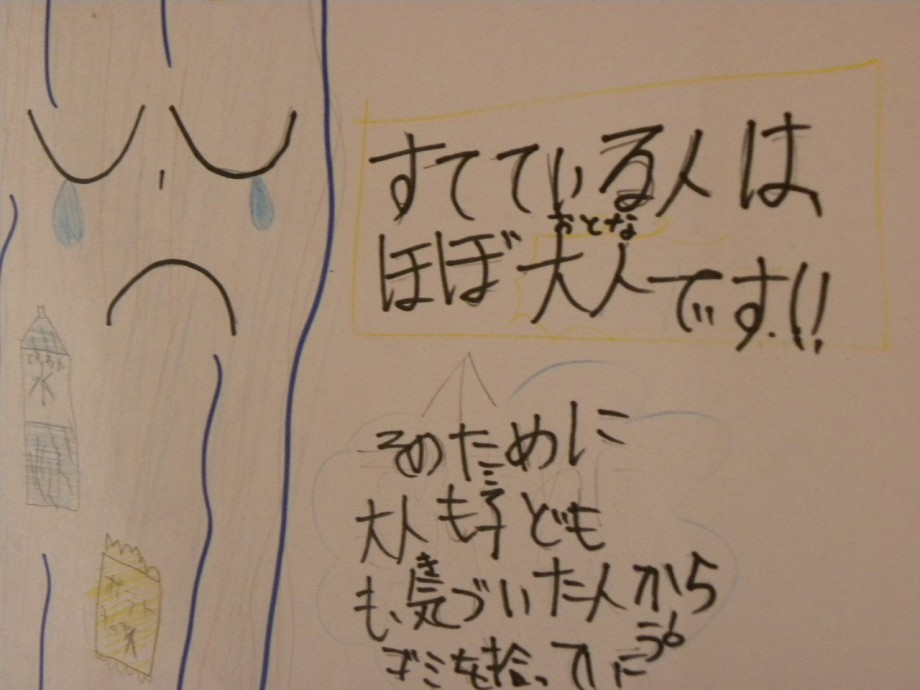 すてている人は
おとな
ほぼ大人です!!
そのために
大人も子ども
き
も気づいた人から
ゴミを拾っ
水